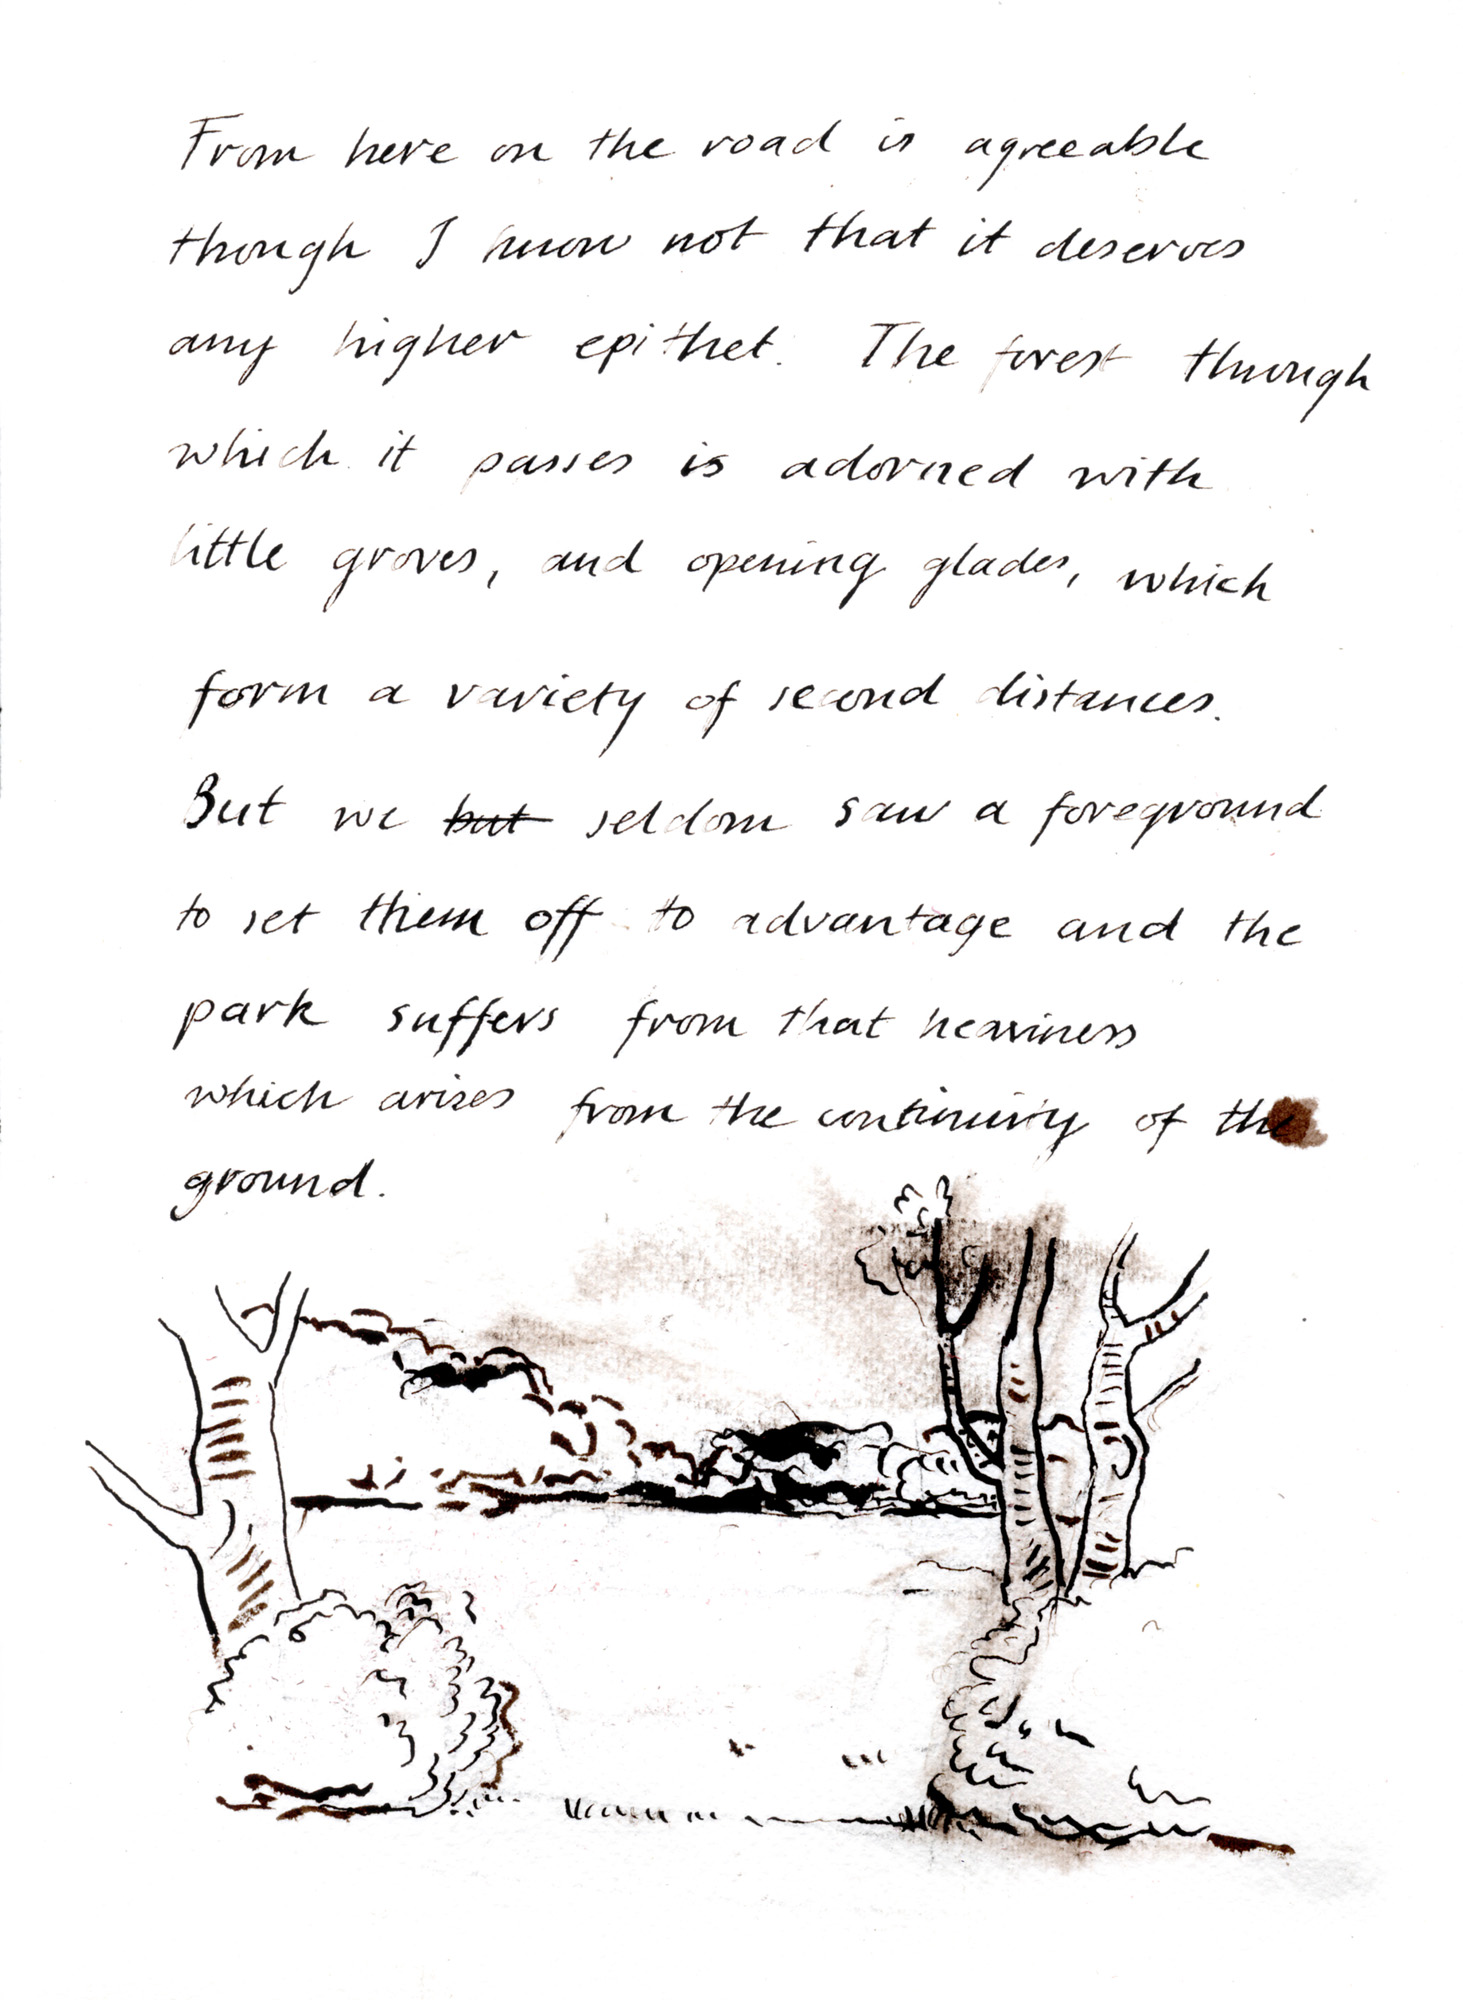 From here on the road is agreeable
though I know not that it deserves
any higher epithet. The forest through
which it passes is adorned with
little groves, and opening glades, which
form a variety of second distances.
But we but seldom saw a foreground
to set them off to advantage and the
park suffers from that heaviness
which arises from the continuity of the
ground.